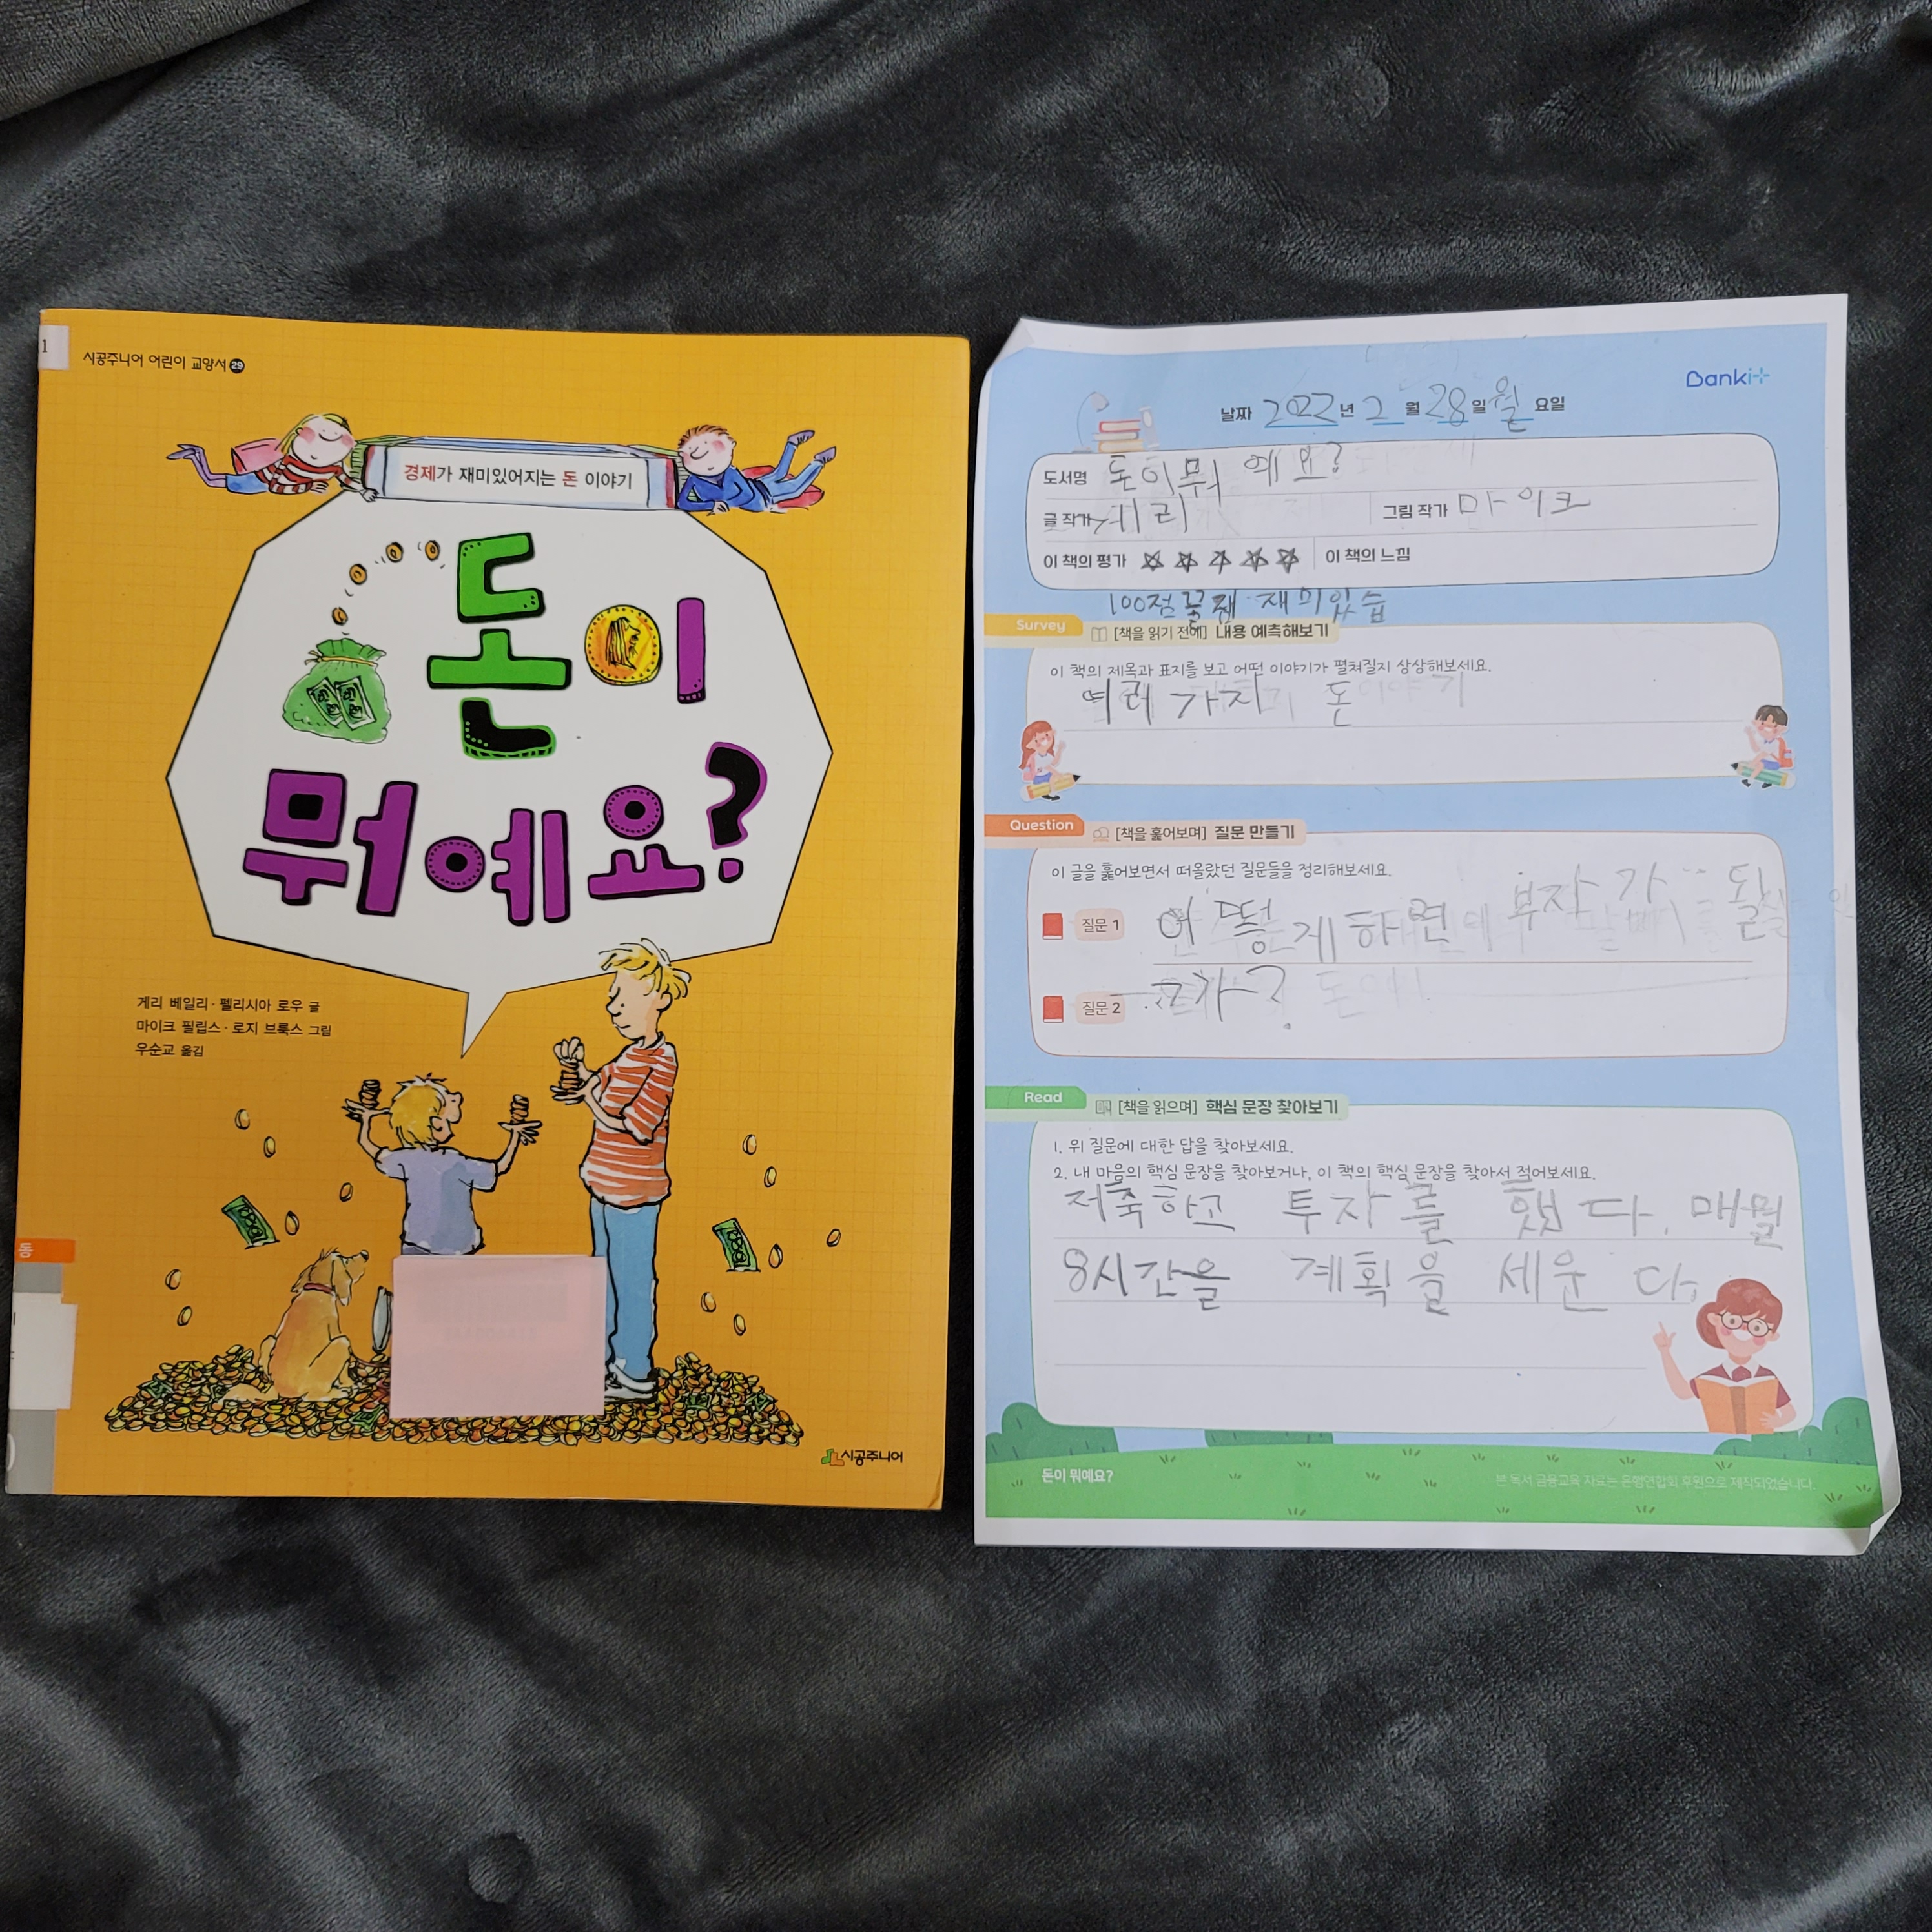 1
시공주니어 어린이 교양서 29
경제가 재미있어지는 돈 이야기
돈이
뭐예요?
게리 베일리·펠리시아 로우 글
마이크 필립스·로지 브룩스 그림
우순교 옮김
동
시공주니어
Bankit
날짜 2022년 2월 28일 월요일
도서명 돈이뭐예요?
글 작가 게리 그림 작가 마이크
이 책의 평가 ☆☆☆☆☆ 이 책의 느낌
100점 재미있슴
Survey [책을 읽기 전에] 내용 예측해보기
이 책의 제목과 표지를 보고 어떤 이야기가 펼쳐질지 상상해보세요.
여러가지 돈
Question [책을 훑어보며] 질문 만들기
이 글을 훑어보면서 떠올랐던 질문들을 정리해보세요.
질문 1 어떻게하면 부자가 될
질문 2 고가?
Read [책을 읽으며] 핵심 문장 찾아보기
1. 위 질문에 대한 답을 찾아보세요.
2. 내 마음의 핵심 문장을 찾아보거나, 이 책의 핵심 문장을 찾아서 적어보세요.
저축하고 투자를 했다. 매월
8시간을 계획을 세운다.
돈이 뭐예요?
본 독서 금융교육 자료는 은행연합회 후원으로 제작되었습니다.